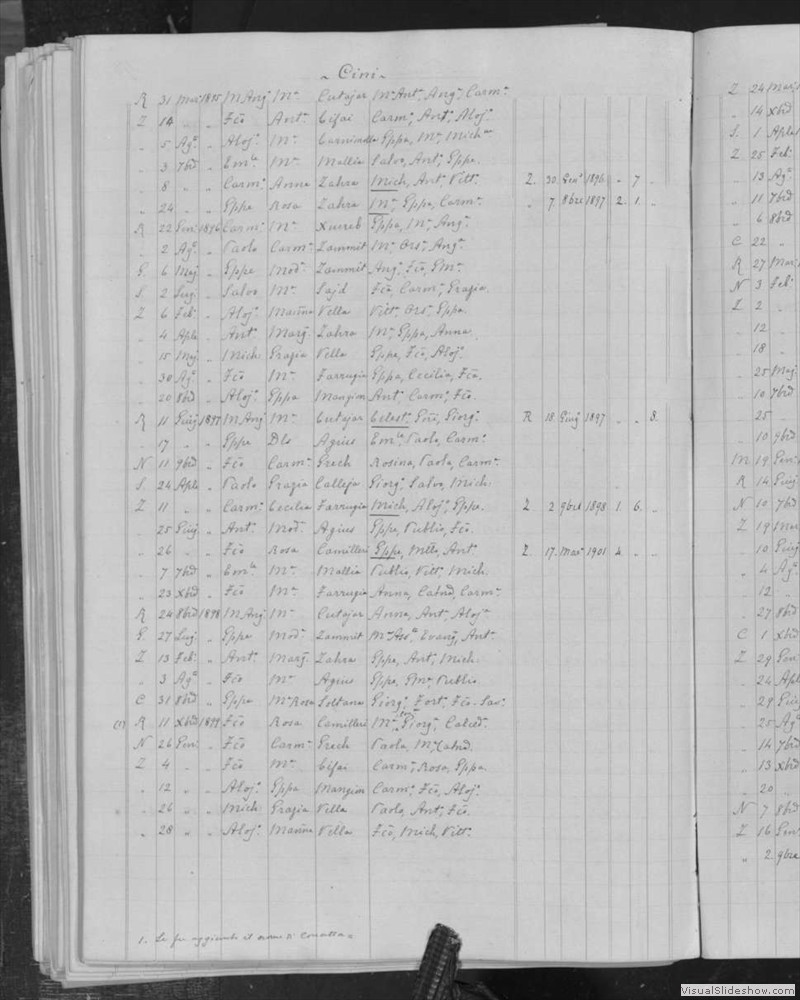 ~ Cini ~
R 31 Mar. 1895 M Ang. Mª Cutajar Mª Antª, Angª, Carmª
Z 14 " " Fćo Antª Cifai Carmª, Antª, Alojª
" 5 Agº " Alojº Mª Eppa, Mª, Mich
" 3 7bre " Emle Mª Mallia Salvo, Antº, Eppa.
" 8 " " Carmº Anna Zahra Mich, Antº, Vittª Z 30 Genº 1896 " 7 "
" 24 " " Eppe Rosa Zahra Mª, Eppa, Carmª " 7 8bre 1897 2 1 "
R 22 Genº 1896 Carmº Mª Xuereb Eppa, Mª, Angª
" 2 Agº " Paolo Carmª Zammit Mª Orsª, Angª
G 6 Maj. " Eppe Modª Zammit Angª, Fća, Emª
S 2 Lug. " Salvo Mª Sajd Fća, Carmª, Grazia
Z 6 Feb. " Alojº Marina Vella Vittª Orsª, Eppa
" 4 Aple " Antº Margª Zahra Mª, Eppa, Anna
" 15 Maj. " Mich Grazia Vella Eppe, Fćo, Alojº
" 30 Agº " Fćo Mª Farrugia Eppa, Cecilia, Fća
" 20 8bre " Alojº Eppa Mangion Antº Carmº, Fćo
R 11 Giug. 1897 M Ang. Mª Cutajar Celestª, Giorgª R 18 Giug. 1897 " " 3.
" 17 " " Eppe Dls Agius Emla Paola, Carmª
N 11 9bre " Fćo Carmª Grech Rosina, Paola, Carmª
S 24 Aple " Paolo Grazia Calleja Giorgº, Salvo, Mich
Z 11 " " Carmº Cecilia Farrugia Mich, Alojº, Eppe Z 2 9bre 1898 1 6 "
" 25 Giug. " Antº Modª Agius Eppe, Publio, Fćo
" 26 " " Fćo Rosa Camilleri Eppe, Mlle, Antº Z 17 Marº 1901 4 " "
" 7 7bre " Emle Mª Mallia Publio, Vittº, Mich
" 23 Xbre " Fćo Mª Farrugia Anna, Catnª, Carmª
R 24 8bre 1898 M Ang. Mª Cutajar Anna, Antª, Alojª
G 27 Lug. " Eppe Modª Zammit Mª Assª Evangª, Antª
Z 13 Feb. " Antº Margª Zahra Eppe, Antº, Mich
" 3 Agº " Fćo Mª Agius Eppe, Emle, Publio
C 31 8bre " Eppe Mª Rosa Soltana Giorgº, Fortº, Fćo Savº
(1) R 11 Xbre 1899 Fćo Rosa Camilleri Mª, Giorgª, Calcedª
N 26 Genº " Fćo Carmª Grech Paola, Mª, Catnª
Z 4 " " Fćo Mª Cifai Carmª, Rosa, Eppa
" 12 " " Alojº Eppa Mangion Carmº, Fćo, Alojº
" 26 " " Mich Grazia Vella Paolo, Antº, Fćo
" 28 " " Alojº Marina Vella Fćo, Mich, Vittº
1. Le fu aggiunto il nome di
Z 24 Mar.
" 14 Xbre
S 1 Aple
Z 25 Feb.
" 13 Agº
" 11 7bre
" 6 8bre
C 22 "
R 27 Mar.
N 3 Feb.
Z 2 "
" 12 "
" 18 "
" 25 Maj.
" 10 7bre
" 25 "
" 10 9bre
M 19 Gen.
R 14 Giug.
N 10 7bre
Z 19 Mar.
" 10 Giug.
" 4 Agº
" 12 "
" 27 8bre
C 1 Xbre
Z 29 Gen.
" 24 Aple
" 29 Giug.
" 25 Agº
" 14 7bre
" 13 Xbre
" 20 "
N 7 8bre
Z 16 Gen.
" 2 9bre
VisualSlideshow.com